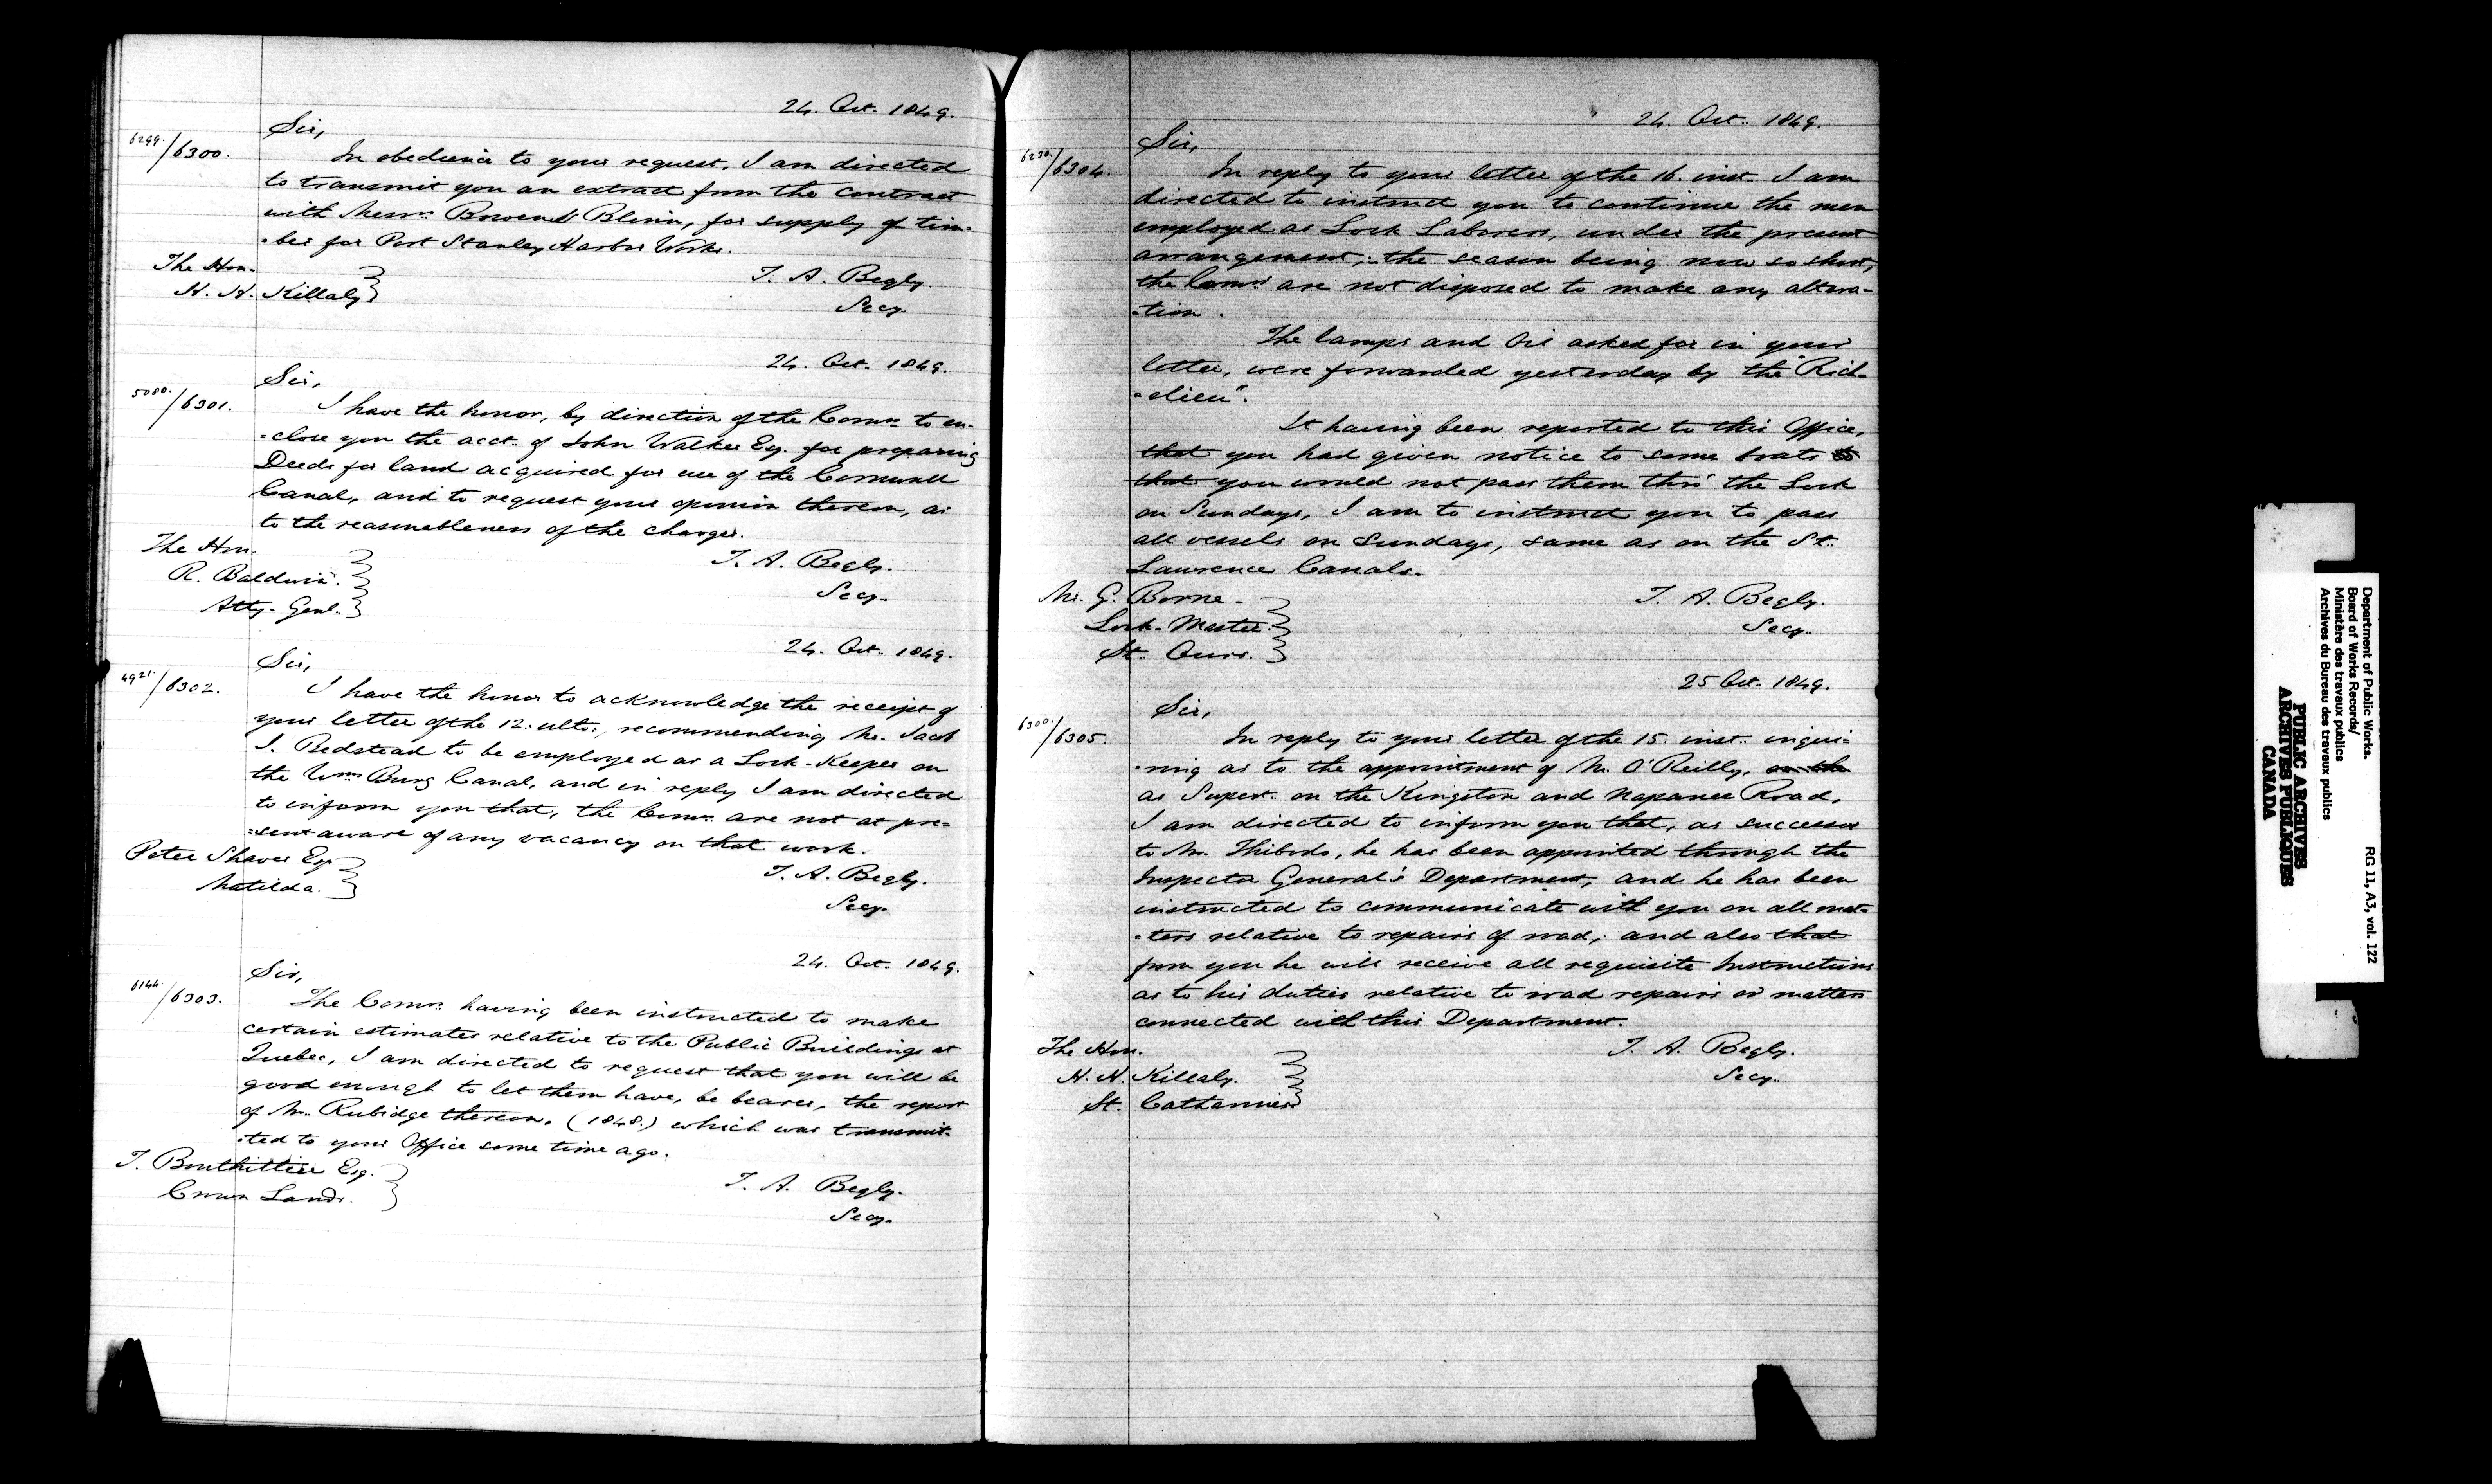 24. Oct. 1849.
Sir,
6299./6300.
In obedience to your request, I am directed
to transmit you an extract from the contract
with Messrs. Bowen & Blinn, for supply of tim-
-ber for Port Stanley Harbor Works.
The Hon.
H. H. Killaly
T. A. Begly.
Secy.
24. Oct. 1849.
Sir,
5080./6301.
I have the honor, by direction of the Comrs. to en-
-close you the acct. of John Walker Esq. for preparing
Deeds for land acquired for use of the Cornwall
Canal, and to request your opinion thereon, as
to the reasonableness of the charges.
The Hon.
R. Baldwin.
Atty. Genl.
T. A. Begly.
Secy.
24. Oct. 1849.
Sir,
4921./6302.
I have the honor to acknowledge the receipt of
your letter of the 12. ulto., recommending Mr. Jacob
J. Bedstead to be employed as a Lock-Keeper on
the Wms Burg Canal, and in reply I am directed
to inform you that, the Comrs. are not at pre-
-sent aware of any vacancy on that work.
Peter Shaver Esq.
Matilda.
T. A. Begly.
Secy.
24. Oct. 1849.
Sir,
6144./6303.
The Comrs. having been instructed to make
certain estimates relative to the Public Buildings at
Quebec, I am directed to request that you will be
good enough to let them have, be bearer, the report
of Mr. Rubidge thereon, (1848.) which was transmit-
-ted to your Office some time ago.
T. Bouthillier Esq.
Crown Lands.
T. A. Begly.
Secy.
24. Oct. 1849.
Sir,
6230./6304.
In reply to your letter of the 16. inst. I am
directed to instruct you to continue the men
employed as Lock Laborers, under the present
arrangement, - the season being now so short,
the Comrs. are not disposed to make any altera-
-tion.
The lamps and Oil asked for in your
letter, were forwarded yesterday by the "Rich-
-elieu".
It having been reported to this Office,
that you had given notice to some boats
that you would not pass them thro' the Lock
on Sundays, I am to instruct you to pass
all vessels on Sundays, same as on the St.
Lawrence Canals.
Mr. G. Borne.
Lock-Master.
St. Ours.
T. A. Begly.
Secy.
25 Oct. 1849.
Sir,
6300./6305.
In reply to your letter of the 15. inst. inqui-
-ring as to the appointment of Mr. O'Reilly, on the
as Supert. on the Kingston and Napanee Road,
I am directed to inform you that, as successor
to Mr. Thibodo, he has been appointed through the
Inspector General's Department, and he has been
instructed to communicate with you on all mat-
-ters relative to repairs of road, and also that
from you he will receive all requisite Instructions
as to his duties relative to road repairs or matters
connected with this Department.
The Hon.
H. H. Killaly.
St. Catharines
T. A. Begly.
Secy.
Department of Public Works.
Board of Works Records/
Ministère des travaux publics
Archives du Bureau des travaux publics
RG 11, A3, vol. 122
PUBLIC ARCHIVES
ARCHIVES PUBLIQUES
CANADA